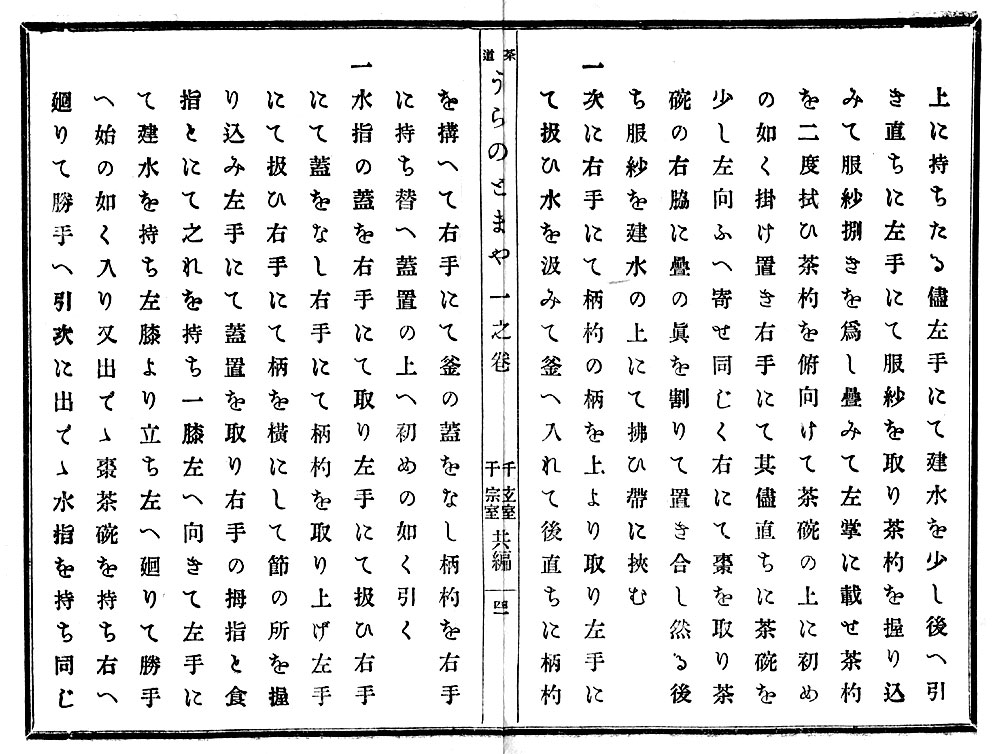 上に持ちたる儘左手にて建水を少し後へ引
き直ちに左手にて服紗を取り茶杓を握り込
みて服紗捌きを爲し疊みて左掌に載せ茶杓
を二度拭ひ茶杓を俯向けて茶碗の上に初め
の如く掛け置き右手にて其儘直ちに茶碗を
少し左向ふへ寄せ同じく右にて棗を取り茶
碗の右脇に疊の眞を割りて置き合し然る後
ち服紗を建水の上にて拂ひ帶に挾む
一次に右手にて柄杓の柄を上より取り左手に
て扱ひ水を汲みて釜へ入れて後直ちに柄杓
茶道うらのとまや 一之卷 千玄室 千宗室 共編 四
を搆へて右手にて釜の蓋をなし柄杓を右手
に持ち替へ蓋置の上へ初めの如く引く
一水指の蓋を右手にて取り左手にて扱ひ右手
にて蓋をなし右手にて柄杓を取り上げ左手
にて扱ひ右手にて柄を横にして節の所を握
り込み左手にて蓋置を取り右手の拇指と食
指とにて之れを持ち一膝左へ向きて左手に
て建水を持ち左膝より立ち左へ廻りて勝手
へ始の如く入り又出でゝ棗茶碗を持ち右へ
廻りて勝手へ引次に出でゝ水指を持ち同じ